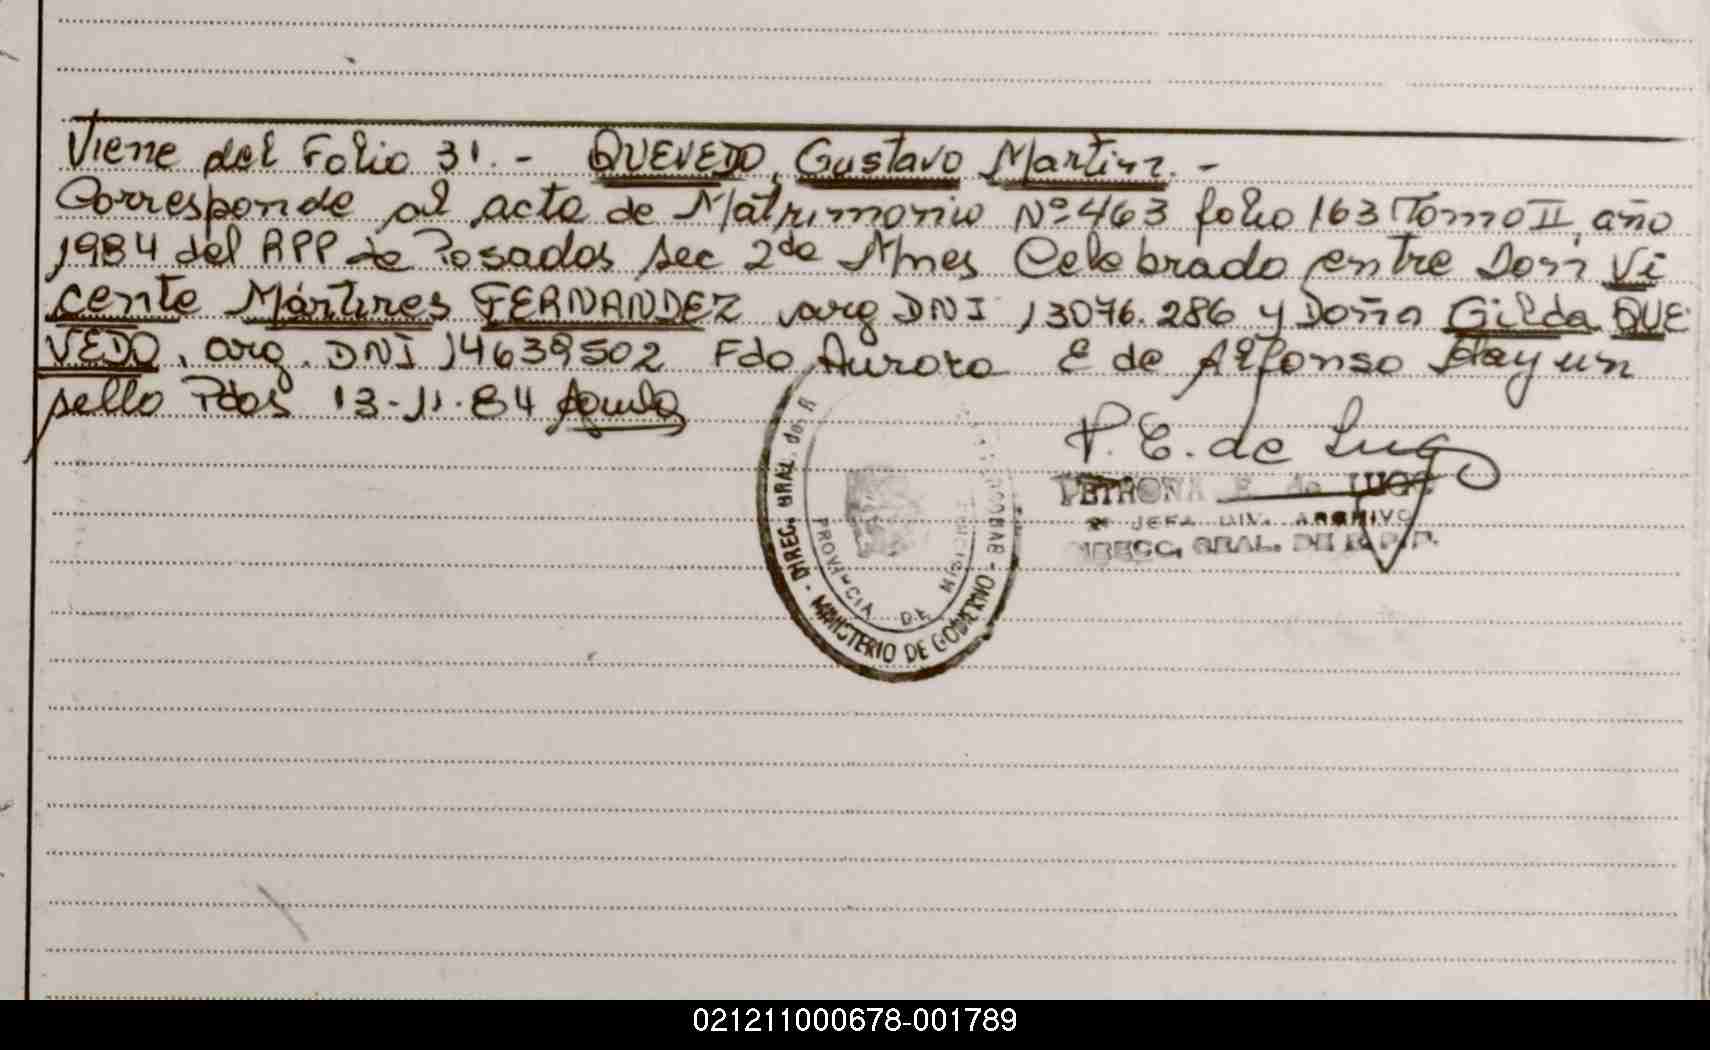 Viene del Folio 31.- QUEVEDO, Gustavo Martin.-
Corresponde al acta de Matrimonio Nº 463 folio 163 Tomo II, año
1984 del RPP de Posadas Sec 2da Mnes Celebrado entre Don Vi
cente Mártires FERNANDEZ arg DNI 13076.286 y Doña Gilda QUE
VEDO, arg. DNI 14639502 Fdo Aurora E de Alfonso Hay un
sello Pdas 13-11-84
P. E. de Lugo
PETRONA E. de LUGO
JEFA DIV. ARCHIVO
DIRECC. GRAL. DE R.P.P.
DIREC. GRAL. de R
- MINISTERIO DE GOBIERNO -
PROVINCIA DE MISIONES
021211000678-001789